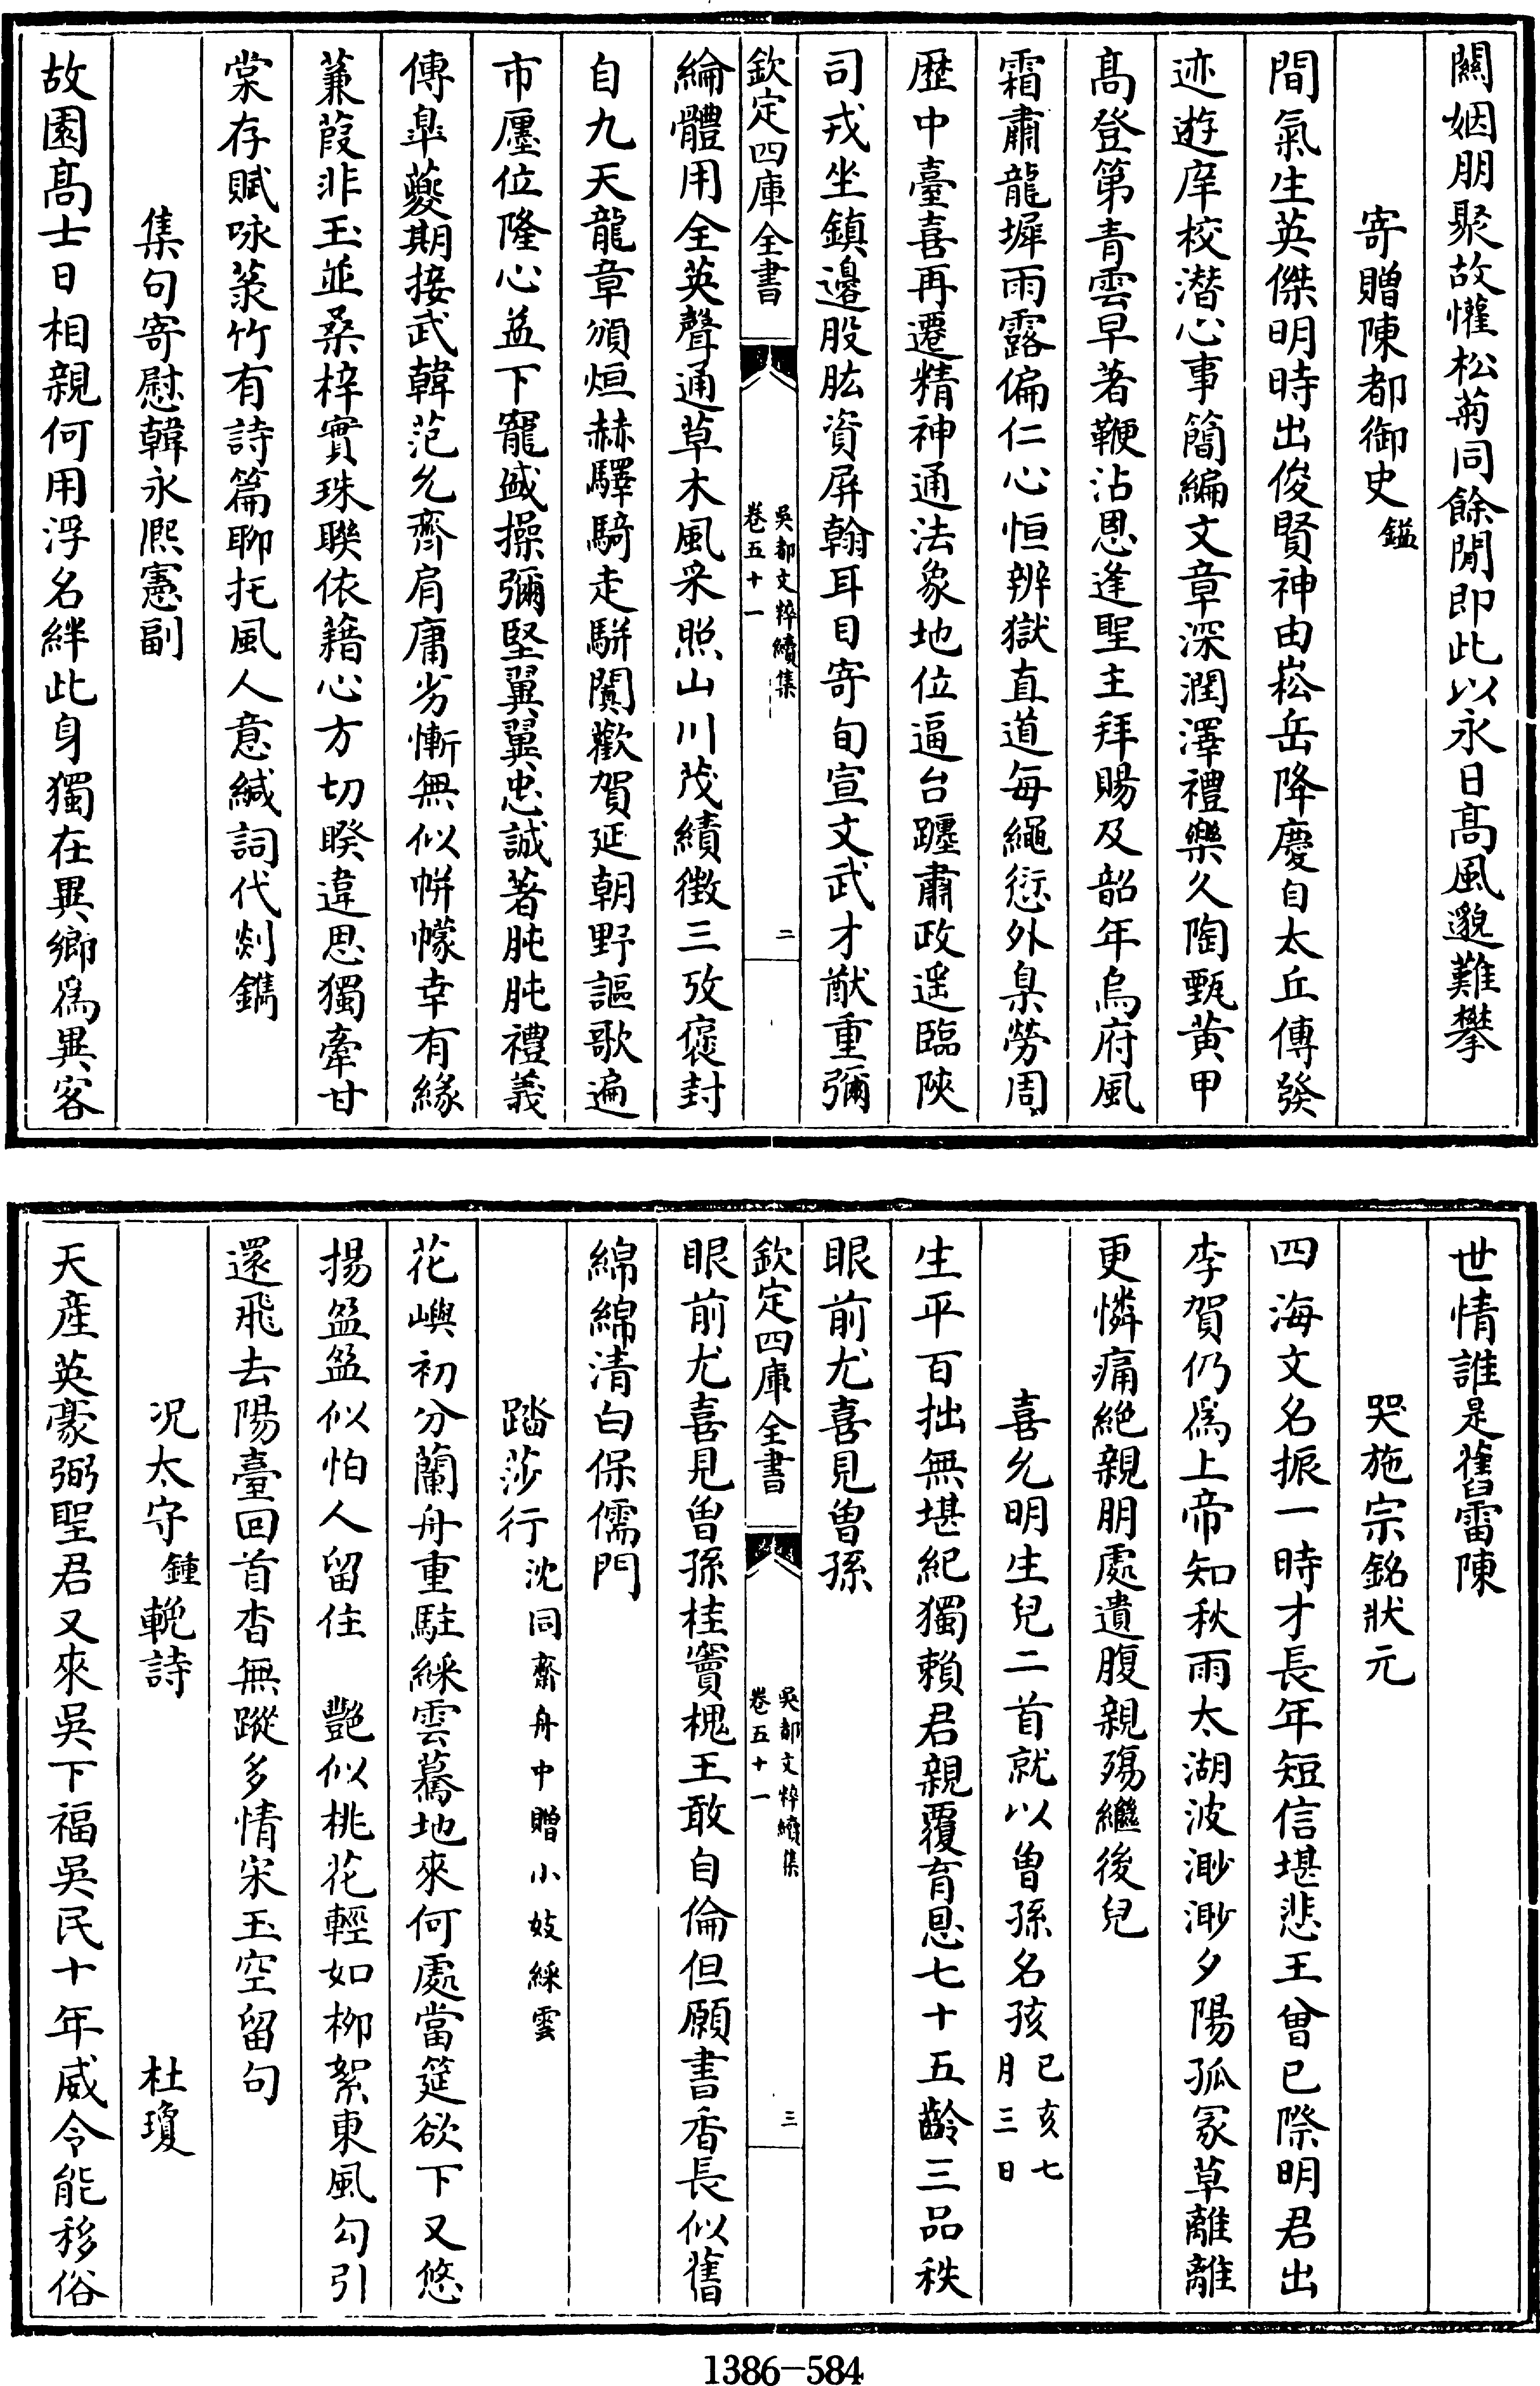 闗姻朋聚故懽松菊同餘閒即此以永日髙風邈難攀
寄贈陳都御史鎰
間氣生英傑明時出俊賢神由崧岳降慶自太丘傳發
迹遊庠校潛心事簡編文章深潤澤禮樂久陶甄黄甲
髙登第青雲早著鞭沾恩逢聖主拜賜及韶年烏府風
霜肅龍墀雨露偏仁心恒辨獄直道每繩愆外臬勞周
歴中臺喜再遷精神通法象地位逼台躔肅政遥臨陜
司戎坐鎮邊股肱資屏翰耳目寄旬宣文武才猷重彌
欽定四庫全書
吳都文粹續集
卷五十一
二
綸體用全英聲通草木風采照山川茂績徴三攷褒封
自九天龍章頒烜赫驛騎走駢闐歡賀延朝野謳歌遍
市廛位隆心益下寵盛操彌堅翼翼忠誠著肫肫禮義
傳臯夔期接武韓范允齊肩庸劣慚無似帡幪幸有緣
蒹葭非玉並桑梓實珠聯依藉心方切睽違思獨牽甘
棠存賦咏菉竹有詩篇聊托風人意緘詞代剡鐫
集句寄慰韓永熈憲副
故園髙士日相親何用浮名絆此身獨在異鄉為異客
世情誰是舊雷陳
哭施宗銘狀元
四海文名振一時才長年短信堪悲王曾已際明君出
李賀仍為上帝知秋雨太湖波渺渺夕陽孤冢草離離
更憐痛絶親朋處遺腹親殤繼後兒
喜允明生兒二首就以曽孫名孩已亥七月三日
生平百拙無堪紀獨賴君親覆育恩七十五齡三品秩
眼前尤喜見曽孫
欽定四庫全書
吳都文粹續集
卷五十一
三
眼前尤喜見曽孫桂竇槐王敢自倫但願書香長似舊
綿綿清白保儒門
踏莎行沈同齋舟中贈小妓綵雲
花嶼初分蘭舟重駐綵雲驀地來何處當筵欲下又悠
揚盈盈似怕人留住　艷似桃花輕如栁絮東風勾引
還飛去陽臺回首杳無蹤多情宋玉空留句
况太守鍾輓詩　杜瓊
天産英豪弼聖君又來吳下福吳民十年威令能移俗
1386-584